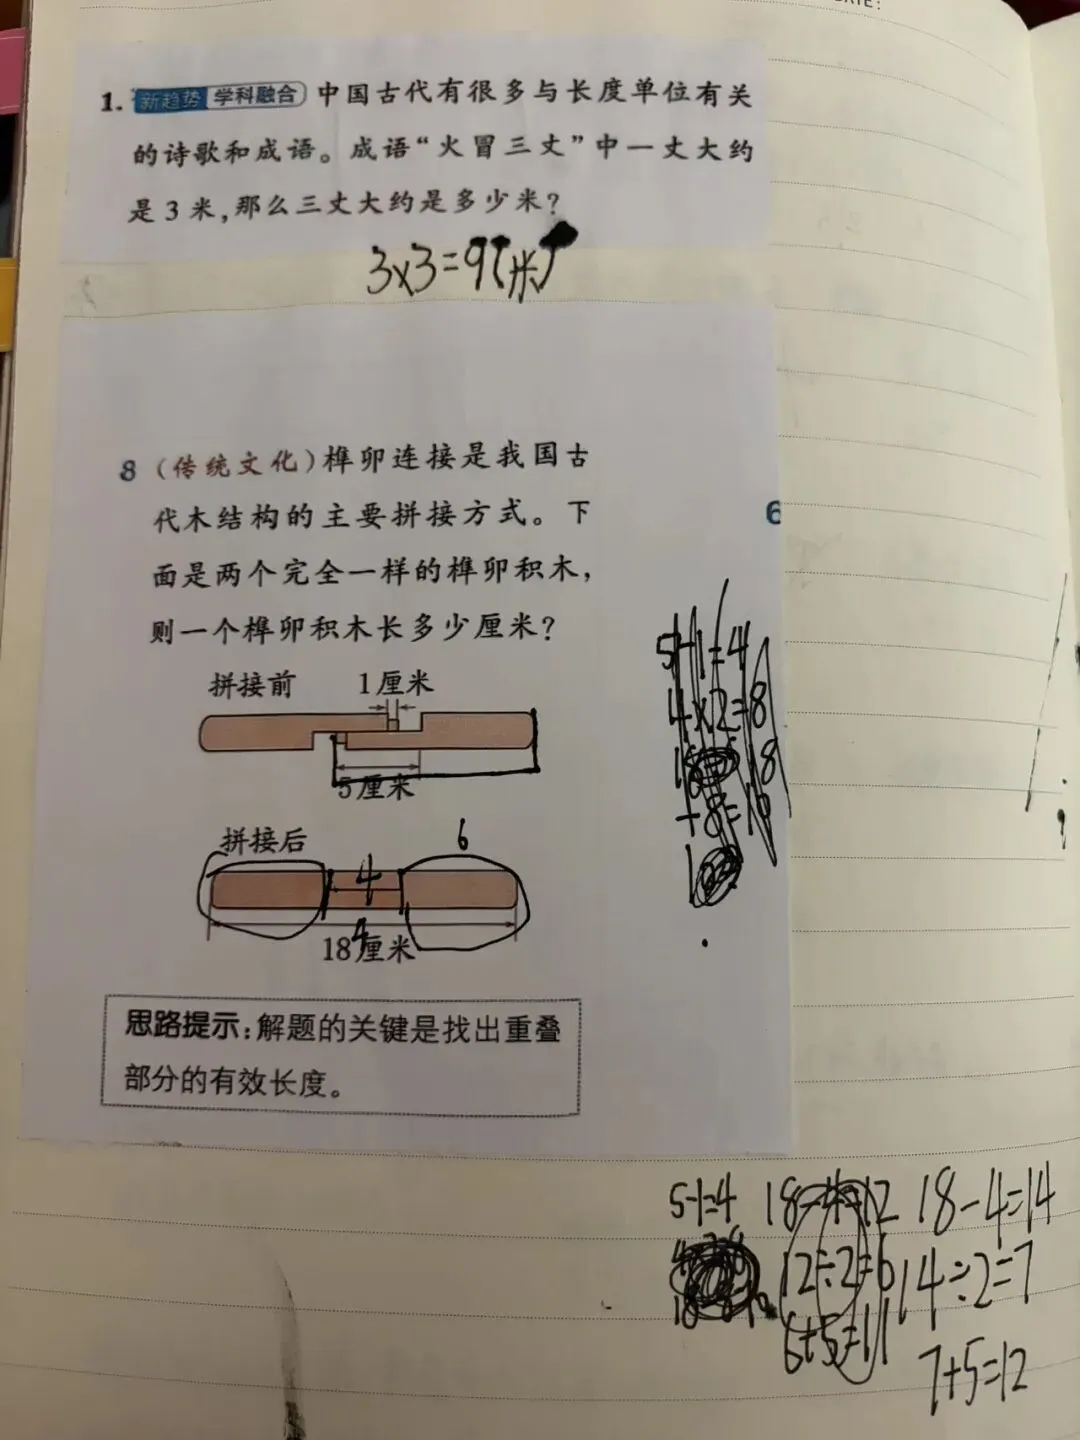 DATE:
1. 新趋势 学科融合 中国古代有很多与长度单位有关
的诗歌和成语。成语“火冒三丈”中一丈大约
是3米,那么三丈大约是多少米?
3×3=9(米)
8 (传统文化)榫卯连接是我国古
代木结构的主要拼接方式。下
面是两个完全一样的榫卯积木,
则一个榫卯积木长多少厘米?
6
拼接前 1厘米
5厘米
拼接后 6
4
18厘米
4
5-1=4
4×2=8
思路提示:解题的关键是找出重叠
部分的有效长度。
5-1=4 18-4=12 18-4=14
12÷2=6 14÷2=7
6+5=11 7+5=12